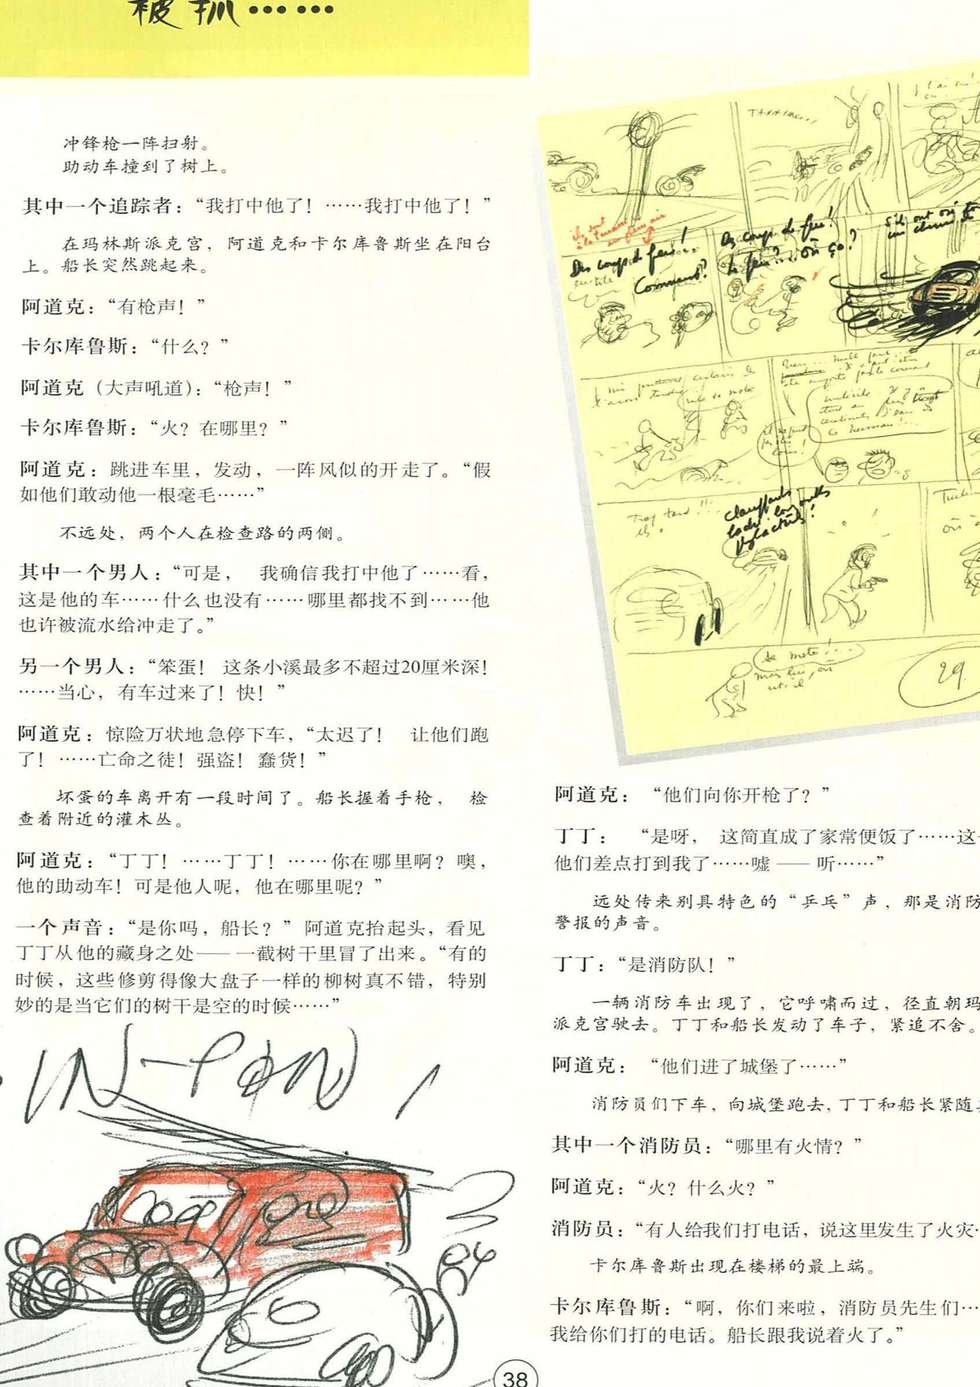 被抓……
冲锋枪一阵扫射。
助动车撞到了树上。
其中一个追踪者：“我打中他了！……我打中他了！”
在玛林斯派克宫，阿道克和卡尔库鲁斯坐在阳台
上。船长突然跳起来。
阿道克：“有枪声！”
卡尔库鲁斯：“什么？”
阿道克（大声吼道）：“枪声！”
卡尔库鲁斯：“火？在哪里？”
阿道克：跳进车里，发动，一阵风似的开走了。“假
如他们敢动他一根毫毛……”
不远处，两个人在检查路的两侧。
其中一个男人：“可是， 我确信我打中他了……看，
这是他的车……什么也没有……哪里都找不到……他
也许被流水给冲走了。”
另一个男人：“笨蛋！这条小溪最多不超过20厘米深！
……当心，有车过来了！快！”
阿道克：惊险万状地急停下车，“太迟了！ 让他们跑
了！……亡命之徒！强盗！蠢货！”
坏蛋的车离开有一段时间了。船长握着手枪， 检
查着附近的灌木丛。
阿道克：“丁丁！……丁丁！……你在哪里啊？噢，
他的助动车！可是他人呢，他在哪里呢？”
一个声音：“是你吗，船长？”阿道克抬起头，看见
丁丁从他的藏身之处——一截树干里冒了出来。“有的
时候，这些修剪得像大盘子一样的柳树真不错，特别
妙的是当它们的树干是空的时候……”
IN-PON
Des coups de feu!
Comment?
Des coups de feu!
Le feu? Où ça?
S'il ont osé
Trop tard!!!
29.
阿道克： “他们向你开枪了？”
丁丁： “是呀， 这简直成了家常便饭了……这
他们差点打到我了……嘘——听……”
远处传来别具特色的“乒乓”声，那是消防
警报的声音。
丁丁：“是消防队！”
一辆消防车出现了，它呼啸而过，径直朝玛
派克宫驶去。丁丁和船长发动了车子，紧追不舍。
阿道克： “他们进了城堡了……”
消防员们下车，向城堡跑去，丁丁和船长紧随
其中一个消防员：“哪里有火情？”
阿道克：“火？什么火？”
消防员：“有人给我们打电话，说这里发生了火灾
卡尔库鲁斯出现在楼梯的最上端。
卡尔库鲁斯：“啊，你们来啦，消防员先生们…
我给你们打的电话。船长跟我说着火了。”
38